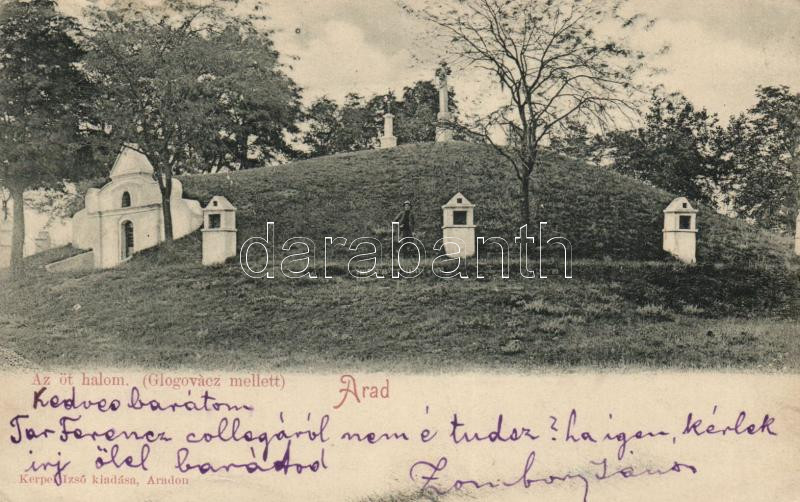 darabanth
Az öt halom. (Glogovàcz mellett) Arad
Kedves barátom
Tar Ferencz collegáról nem é tudsz? ha igen, kérlek
irj ölel barátod
Zombory János
Kerpel Izsó kiadása, Aradon